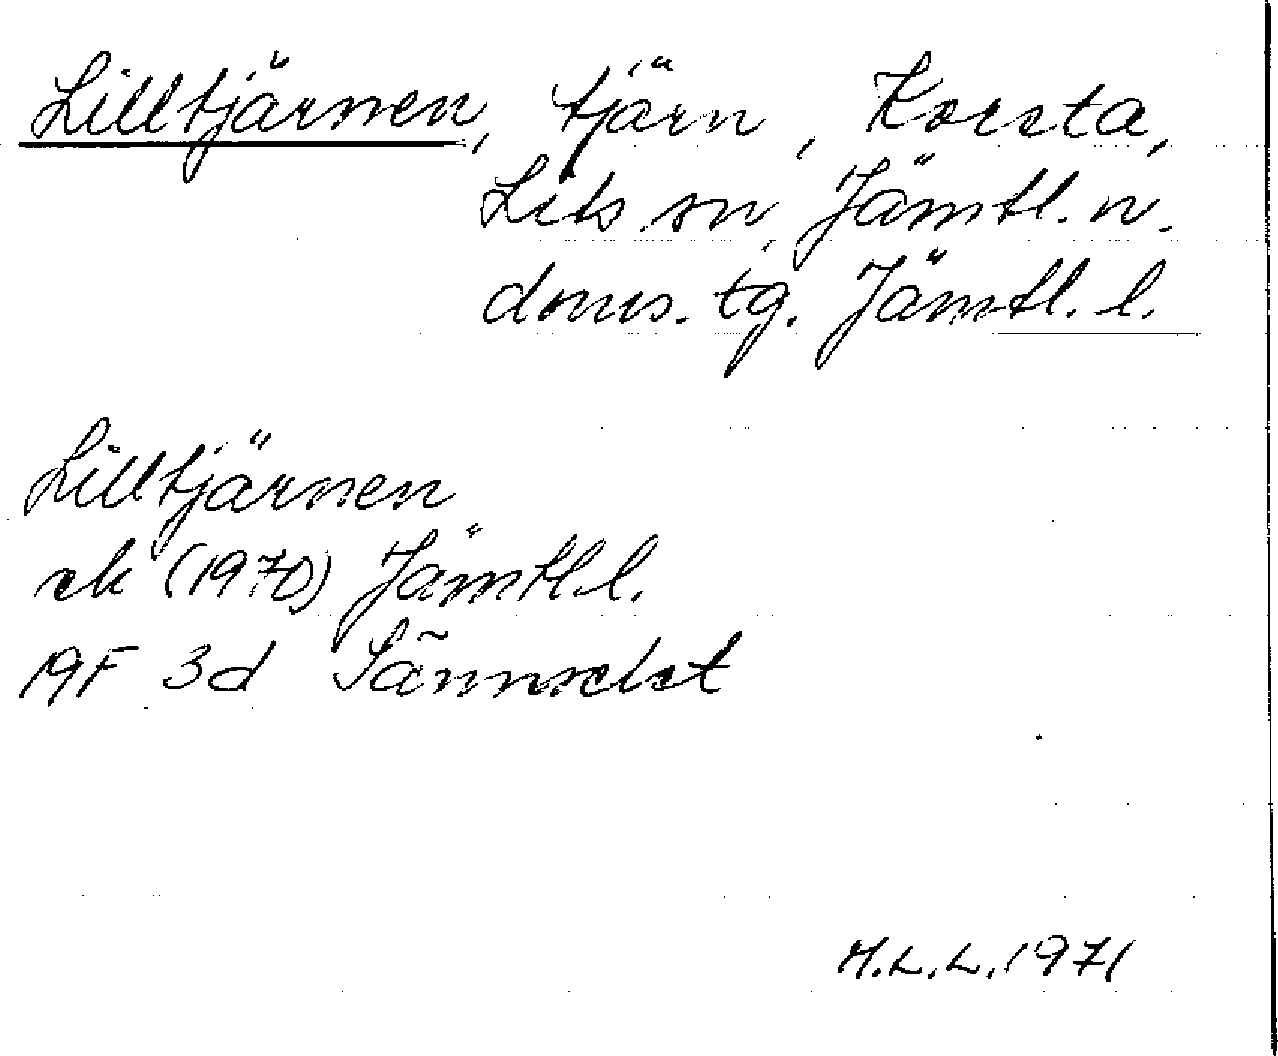 Lilltjärnen, tjärn, Korsta,
Lits sn, Jämtl. n.
doms. tg. Jämtl. l.
Lilltjärnen
ek (1970) Jämtl. l.
19F 3d
H.L.L. 1971